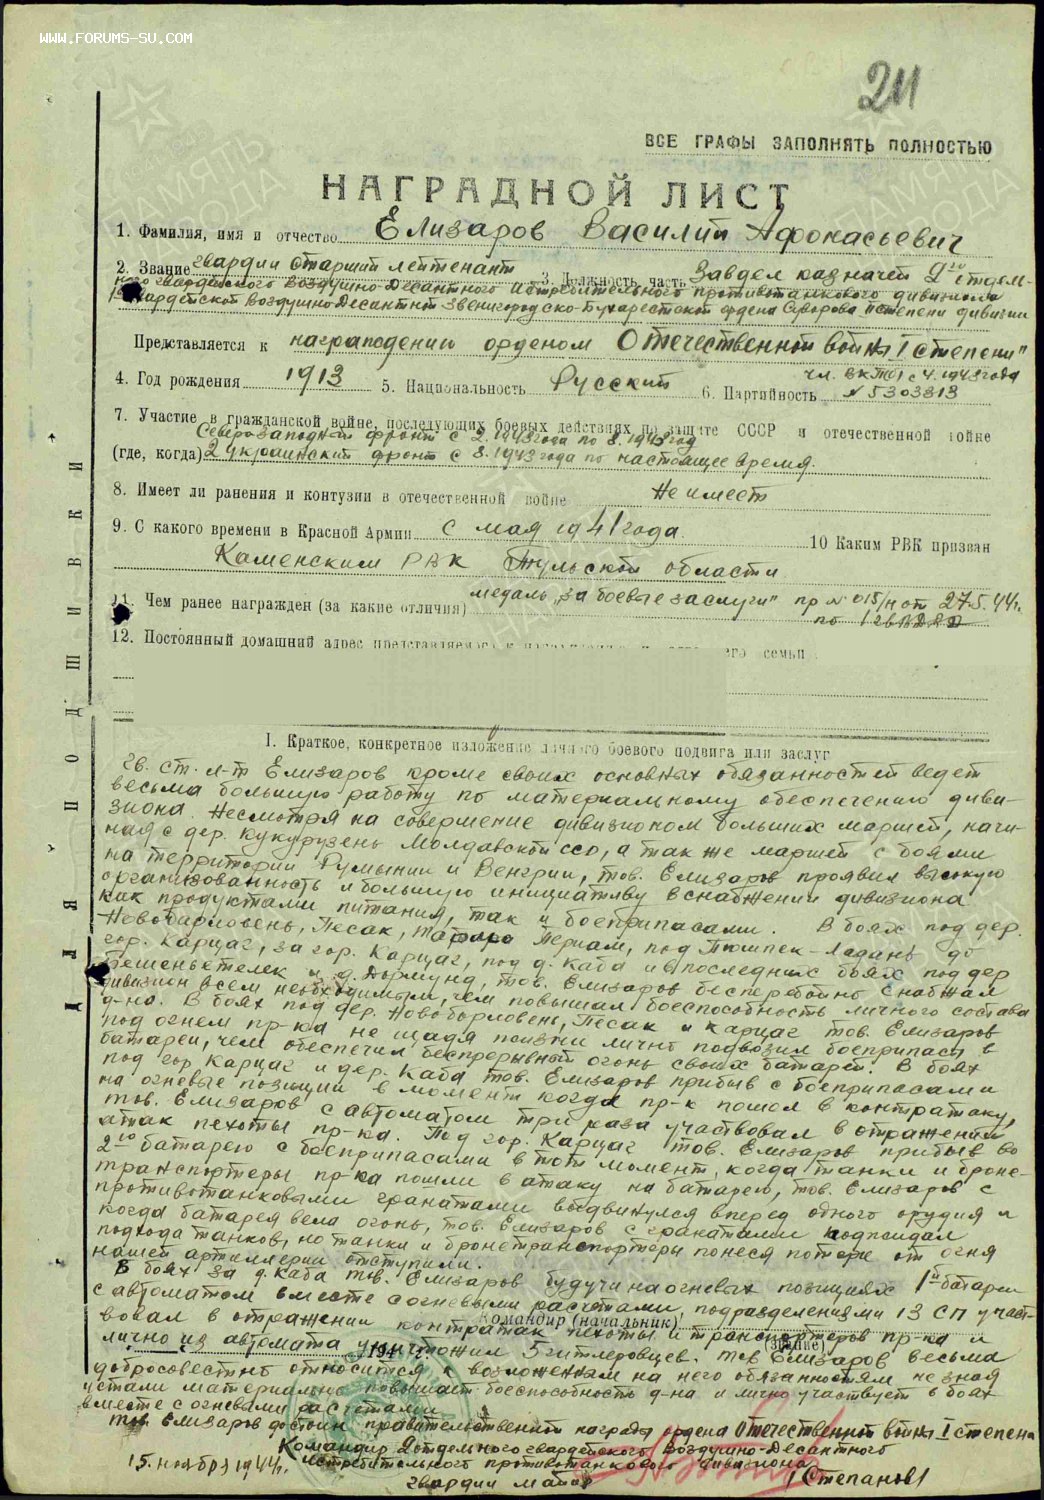 WWW.FORUMS-SU.COM
211
ВСЕ ГРАФЫ ЗАПОЛНЯТЬ ПОЛНОСТЬЮ
НАГРАДНОЙ ЛИСТ
1. Фамилия, имя и отчество Елизаров Василий Афонасьевич
2. Звание гвардии старший лейтенант 3. Должность, часть Завдел казначей 2го отдель-
ного гвардейского Воздушно-Десантного истребительного противотанкового дивизиона
1й гвардейской воздушно Десантной Звенигородско-Бухарестской ордена Суворова II степени дивизии
Представляется к награждению орденом Отечественной войны I степени"
4. Год рождения 1913 5. Национальность Русский 6. Партийность чл. ВКП(б) с 4.1943 года
№ 5303313
7. Участие в гражданской войне, последующих боевых действиях по защите СССР и отечественной войне
Северозападный фронт с 2.1943 года по 8.1943 год
(где, когда) 2 украинский фронт с 8.1943 года по настоящее время.
8. Имеет ли ранения и контузии в отечественной войне Не имеет
9. С какого времени в Красной Армии с мая 1941 года
10 Каким РВК призван
Каменским РВК Тульской области
11. Чем ранее награжден (за какие отличия) медаль „за боевые заслуги" пр № 015/н от 27.5.44г.
по 1 гв ВДД
12. Постоянный домашний адрес представляемого к семьи
I. Краткое, конкретное изложение личного боевого подвига или заслуг
Гв. ст. л-т Елизаров кроме своих основных обязанностей ведет
весьма большую работу по материальному обеспечению диви-
зиона. Несмотря на совершение дивизионом больших маршей, начи-
ная с дер. Кукурузень Молдавской сср, а так же маршей с боями
на территории Румынии и Венгрии, тов. Елизаров проявил высокую
организованность и большую инициативу в снабжении дивизиона
как продуктами питания, так и боеприпасами. В боях под дер.
Новобарловень, Песак, под
гор. Карцаг, за гор. Карцаг, под д. Каба и в последних боях под дер
и д. Дормунд, тов. Елизаров бесперебойно снабжал
дивизион всем необходимым, чем повышал боеспособность личного состава
д-на. В боях под дер. Новоборловень, Песак и Карцаг тов. Елизаров
под огнем пр-ка не щадя жизни лично подвозил боеприпасы в
батареи, чем обеспечил беспрерывный огонь своих батарей. В боях
под гор Карцаг и дер. Каба тов. Елизаров прибыв с боеприпасами
на огневые позиции в момент когда пр-к пошол в контратаку,
тов. Елизаров с автоматом три раза участвовал в отражении
атак пехоты пр-ка. Под гор. Карцаг тов. Елизаров прибыв во
2-ю батарею с боеприпасами в тот момент, когда танки и броне-
транспортеры пр-ка пошли в атаку на батарею, тов. Елизаров с
противотанковыми гранатами выдвинулся вперед одного орудия и
когда батарея вела огонь, тов. Елизаров с гранатами поджидал
подхода танков, но танки и бронетранспортеры понеся потери от огня
нашей артиллерии отступили.
В боях за д. Каба тов. Елизаров будучи на огневых позициях 1й батареи
с автоматом вместе согневыми расчетами, подразделениями 13 СП участ-
Командир (начальник)
вовал в отражении контратак пехоты и транспортеров пр-ка и
(звание)
лично из автомата уничтожил 5 гитлеровцев. тов Елизаров весьма
194 г.
добросовестно относится возложенным на него обязанностям не зная
устали материально повышает боеспособность д-на и лично участвует в боях
вместе с огневыми расчетами
Тов. Елизаров достоин правительственной награды ордена Отечественной войны I степени
Командир 2 отдельного гвардейского Воздушно-Десантного
15 ноября 1944г. истребительного противотанкового дивизиона
гвардии майор /Степанов/
ДЛЯ ПОДШИВКИ
ПАМЯТЬ НАРОДА